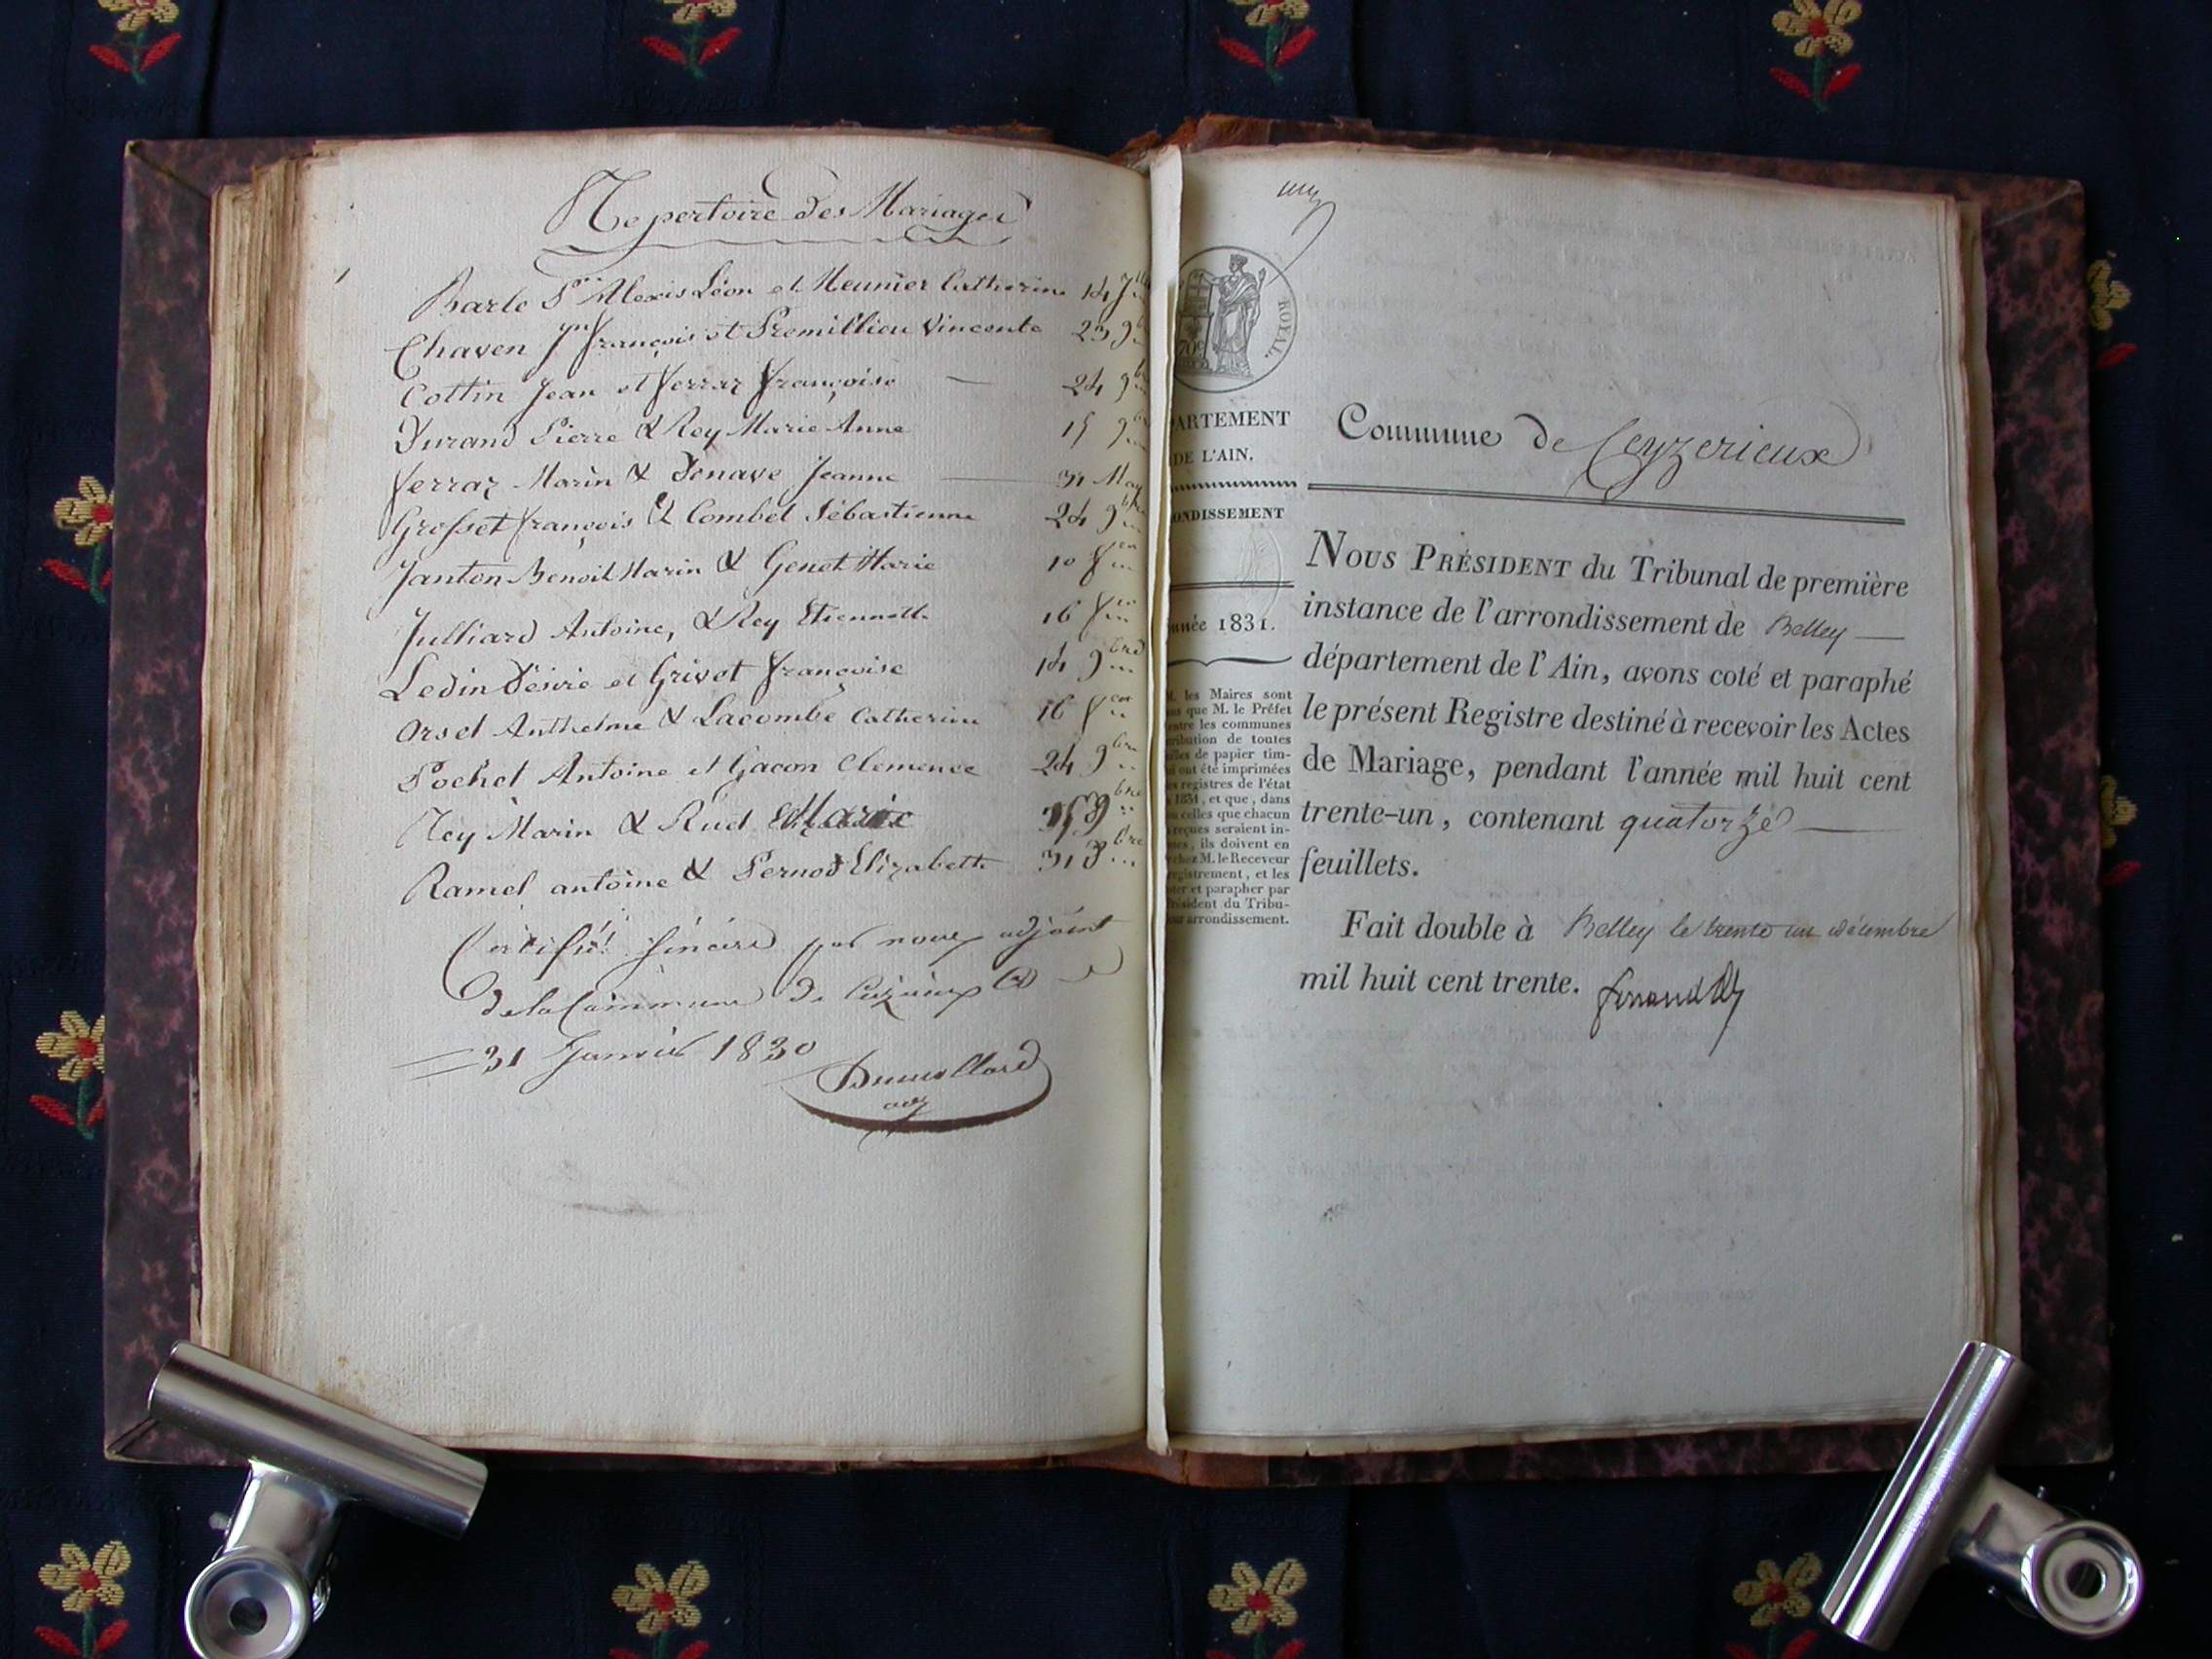 Repertoire des Mariages
Barle Alexis Léon et Meunier Catherine 14
Chaven François et Premillieu Vincente 23 9
Cottin Jean et ferraz françoise — 24 9
Durand Pierre & Rey Marie Anne 15 9
ferraz Marin & Jeanne — 31 May
Grosset françois & Combet Sébastienne 24 9bre
Janton Benoit Marin & Genet Marie 10
Julliard Antoine, & Rey Etiennette 16
Ledin Désiré et Grivet françoise 14 9bre
Orset Anthelme & Lacombe Catherine 16
Pochet Antoine et Gacon Clemence 24 9bre
Rey Marin & Rud Marie 9bre
Ramel antoine & Pernod Elizabeth 31
Certifié Sincère par nous adjoint
de la Commune de
31 Janvier 1830
adj
ROYAL.
70c
PARTEMENT
DE L'AIN.
ONDISSEMENT
nnée 1831.
M. les Maires sont
que M. le Préfet
entre les communes
ribution de toutes
lles de papier tim-
ont été imprimées
registres de l'état
1831, et que, dans
celles que chacun
reçues seraient in-
, ils doivent en
chez M. le Receveur
egistrement, et les
ter et parapher par
Président du Tribu-
arrondissement.
Commune de Ceyzerieux
NOUS PRÉSIDENT du Tribunal de première
instance de l'arrondissement de Belley —
département de l'Ain, avons coté et paraphé
le présent Registre destiné à recevoir les Actes
de Mariage, pendant l'année mil huit cent
trente-un, contenant quatorze —
feuillets.
Fait double à Belley le trente un décembre
mil huit cent trente.